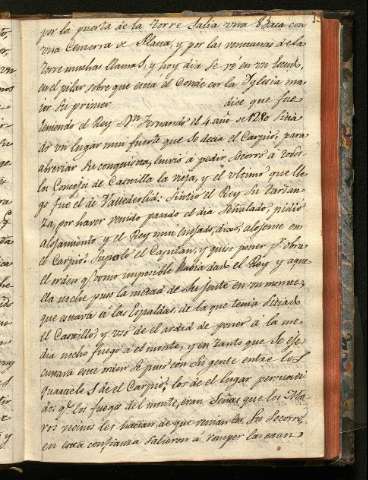 por la puerta de la Torre salia una Baca con
una Cencerra de Plata, y por las ventanas de la
Torre muchas llamas, y hoy dia se ve en un lienzo,
en el pilar sobre que carga el Conde en la Yglesia ma-
yor su primer dize que fue
teniendo el Rey Dn Fernando el 4 año de sitia-
do un lugar muy fuerte que se decia el Carpio, para
abreviar su conquista, envió a pedir Socorro a todos
los Concejos de Castilla la vieja, y el ultimo que lle-
gó fue el de Valladolid: Sintió el Rey su tardan-
za, por haver venido pasado el dia señalado, pidió
alojamiento y el Rey muy enojado, dixo, alojese en
el Carpio: Supolo el Capitan, y quiso poner pr obra
el orden qe como imposible havia dado el Rey y aque-
lla noche puso la mitad de su gente en un monte,
que estava á las espaldas, de la que tenia sitiado
el Castillo, y dio de el orden de poner á la me-
dia noche fuego á el monte, y en tanto que se exe-
cutava este orden se puso con su gente entre los
quarteles de el Carpio, los de el lugar persuadi-
dos qe los fuegos del monte, eran señas que los Mo-
ros vecinos les hacian de que venian en su Socorro,
en esta confianza salieron a romper las